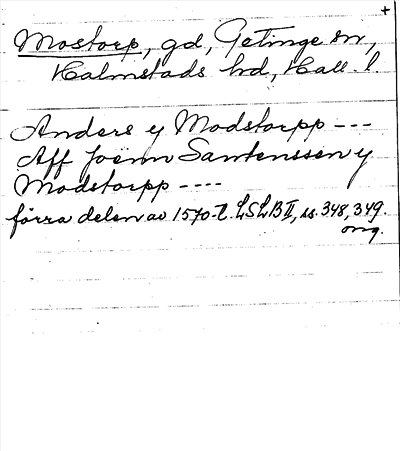 +
Mostorp, gd, Getinge sn,
Halmstads hd, Hall. l
Anders y Modstorpp ---
Aff Joenn Santenssen y
Modstorpp ----
förra delen av 1570-t. LSLB II, ss. 348, 349.
orig.